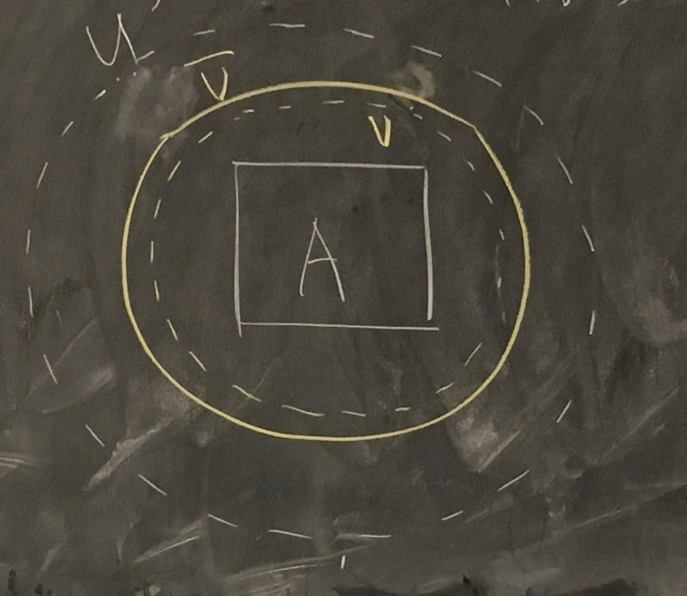 U
V̅
V
A